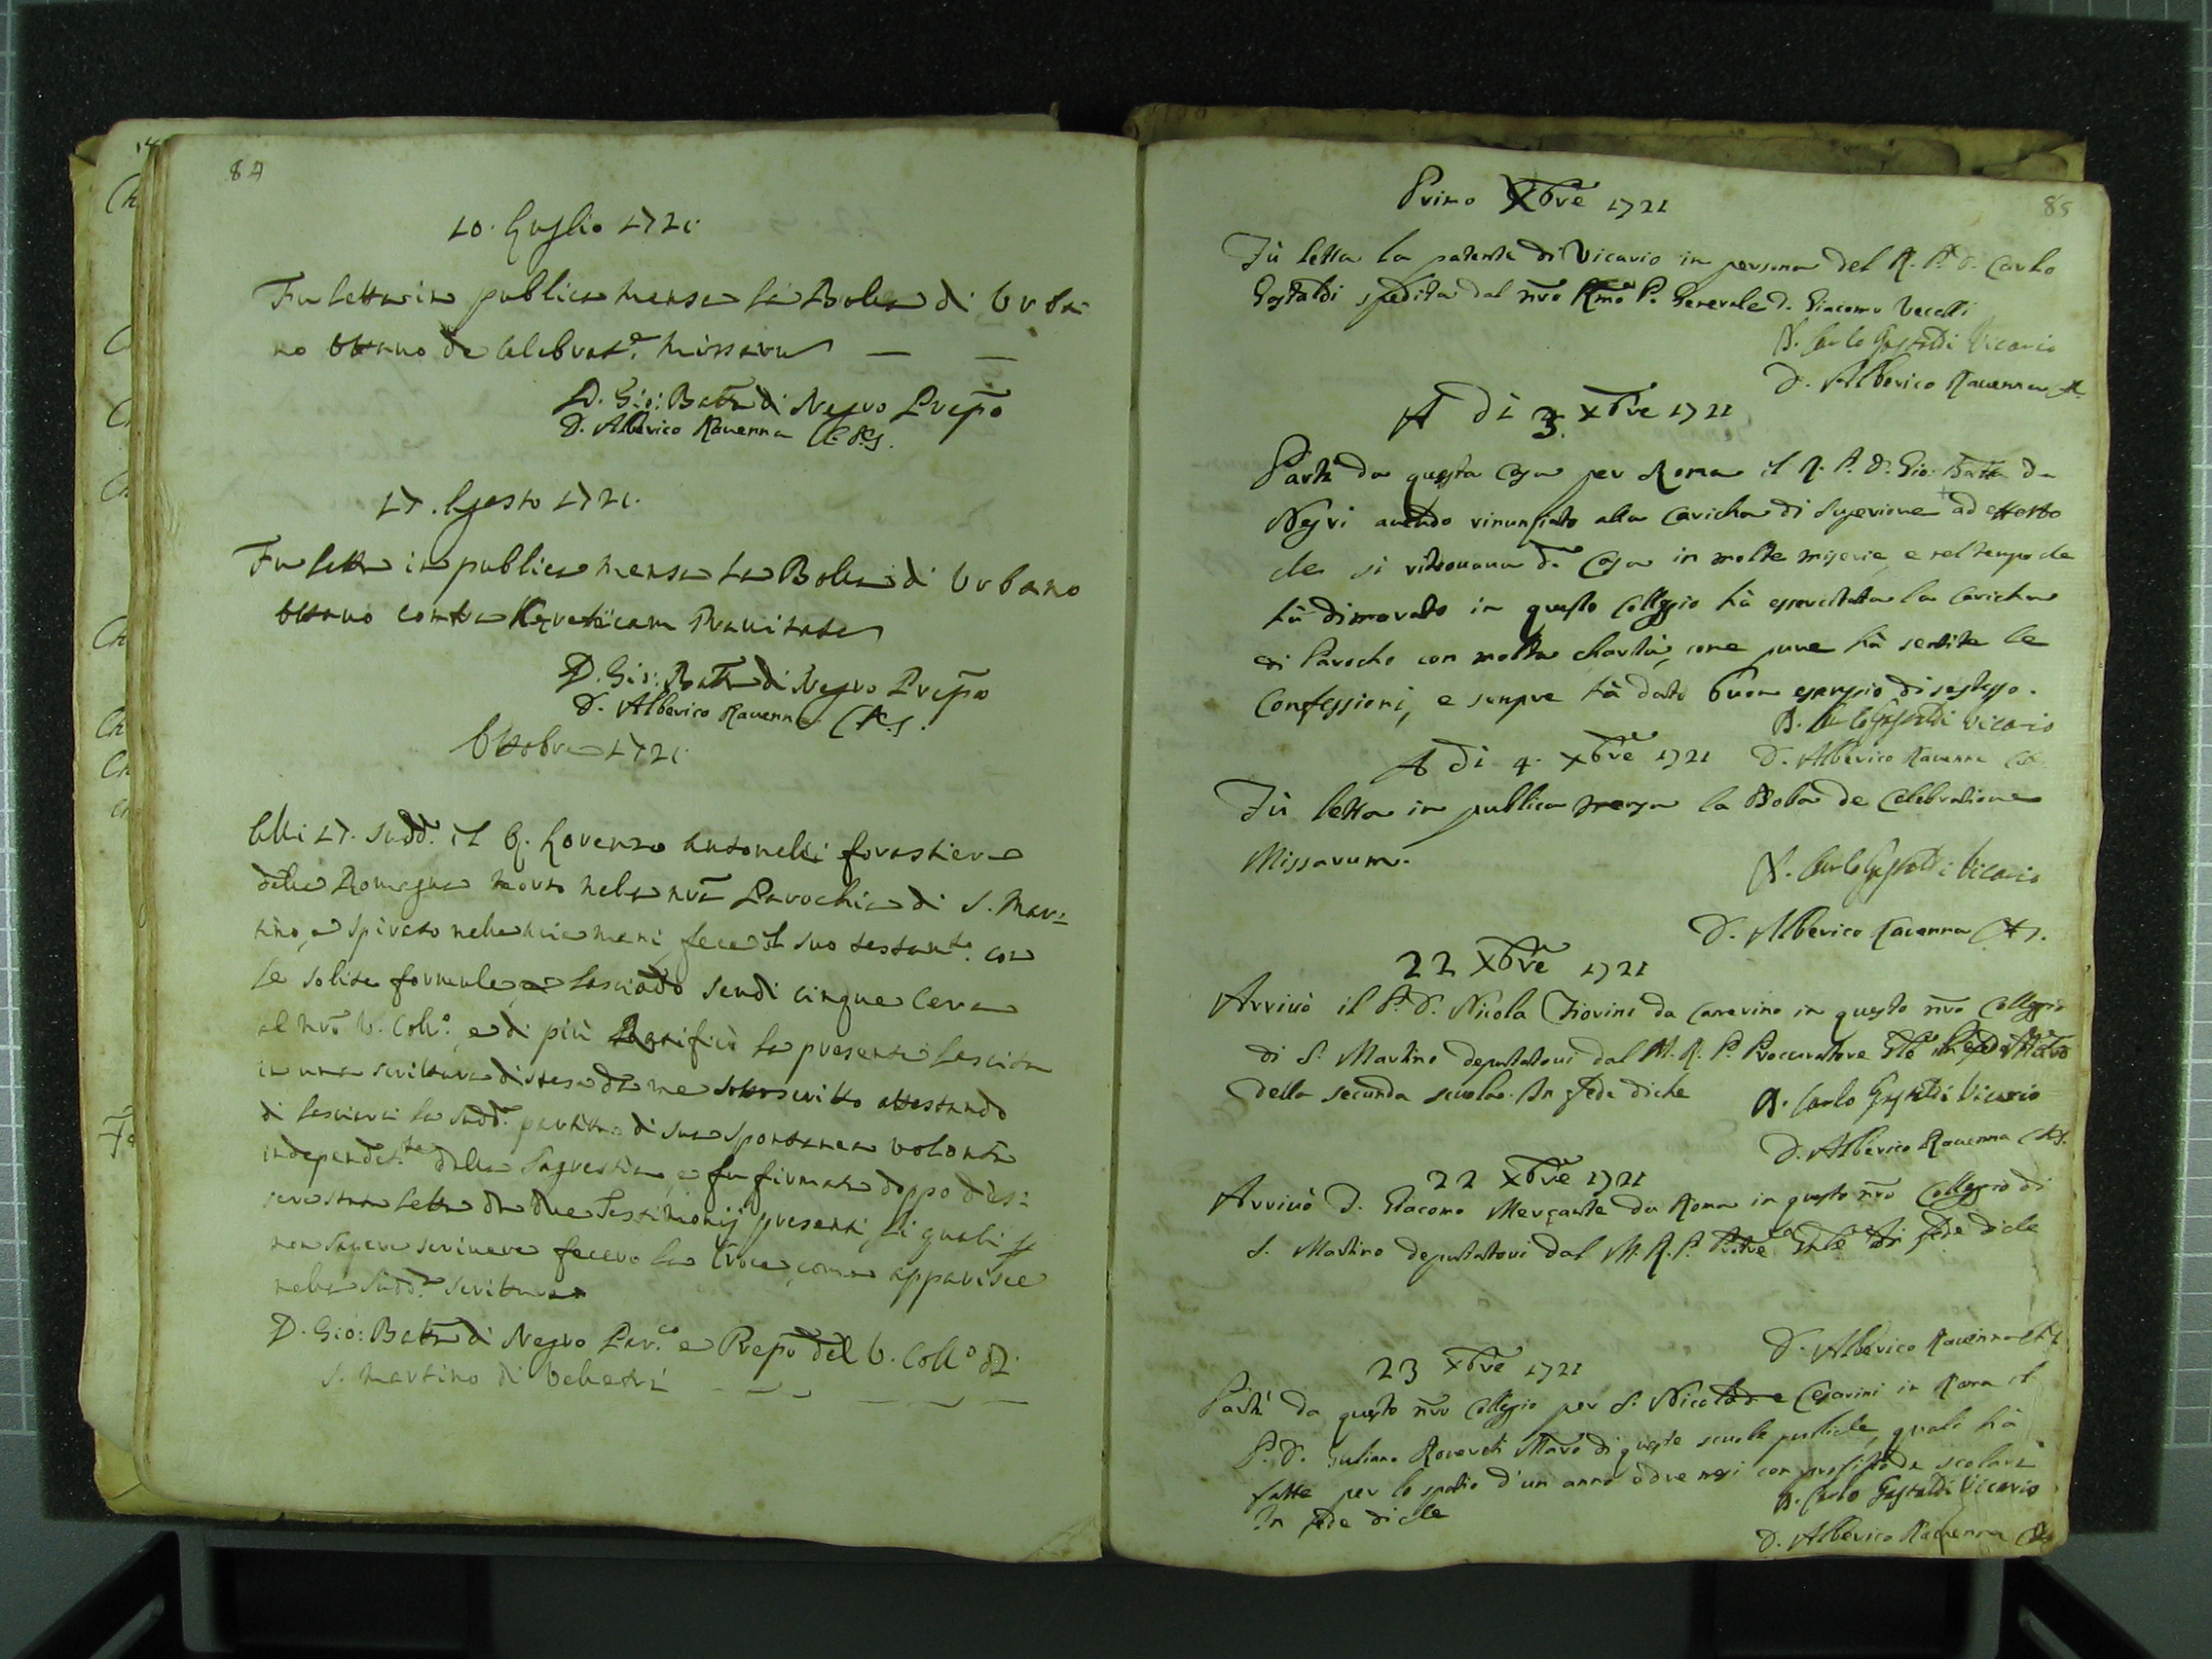 84
10. Luglio 1721.
Fu letta in publica mensa la Bolla di Urba-
no Ottauo de Celebrat.e Missarum
D. Gio: Batta di Negro Prepo
D. Alberico Rauenna C.R.S.
17. Agosto 1721.
Fu letta in publica mensa la Bolla di Urbano
Ottauo contra Hereticam Prauitatem
D. Gio: Batta di Negro Prepo
D. Alberico Rauenna C.R.S.
Ottobre 1721.
Alli 17. sudd. il Q. Lorenzo Antonelli forastiere
della Romagna morto nella nra Parochia di S. Mar-
tino, e spirato nelle mie mani, fece il suo testamto. con
le solite formule, lasciado scudi cinque cera
al nro V. Collo., e di più la presente lascita
in una scrittura distesa da me sottoscritto attestando
di lasciarci la sudda. partita di sua spontanea volontà
independete.te dalla Sagrestia, e fu firmata doppo d'es-
sere stata letta da due Testimonij presenti, li quali p
non sapere scriuere fecero la Croce, come apparisce
nella sudda. scrittura
D. Gio: Batta di Negro Par.co e Prepo del V. Collo di
S. Martino di Velletri
85
Primo Xbre 1721
Fù letta la patente di Vicario in persona del R. P. D. Carlo
Gastaldi spedita dal nro Rmo P. Generale D. Giacomo Vecelli
D. Carlo Gastaldi Vicario
D. Alberico Rauenna
A dì 3. Xbre 1721
Partì da questa Casa per Roma il R. P. D. Gio. Batta da
Negri auendo rinunziato alla Caricha di Superiore ad effetto
che si ritrouaua da. Casa in molte miserie, e nel tempo che
hà dimorato in questo Collegio hà essercitata la Caricha
di Parocho con molta charità, come pure hà sentite le
Confessioni, e sempre hà dato buon esempio di se stesso.
D. Carlo Gastaldi Vicario
A dì 4. Xbre 1721 D. Alberico Rauenna
Fù letta in publica mensa la Bolla de Celebratione
Missarum.
D. Carlo Gastaldi Vicario
D. Alberico Rauenna
22 Xbre 1721
Arriuò il P. D. Nicola Fiorini da Camerino in questo nro Collegio
di S. Martino deputatoui dal M. R. P. Proccuratore Gle Mro
della seconda scuola. In fede di che D. Carlo Gastaldi Vicario
D. Alberico Rauenna
22 Xbre 1721
Arriuò D. Giacomo Mercante da Roma in questo nro Collegio di
S. Martino deputatoui dal M. R. P. Gnle In fede di che
D. Alberico Rauenna
23 Xbre 1721
Partì da questo nro Collegio per S. Nicola Cesarini in Roma il
P. D. Giuliano Rovereti Mro di queste scuole publiche, quali hà
fatte per lo spatio d'un anno e due mesi con profitto de scolari
In fede di che D. Carlo Gastaldi Vicario
D. Alberico Rauenna